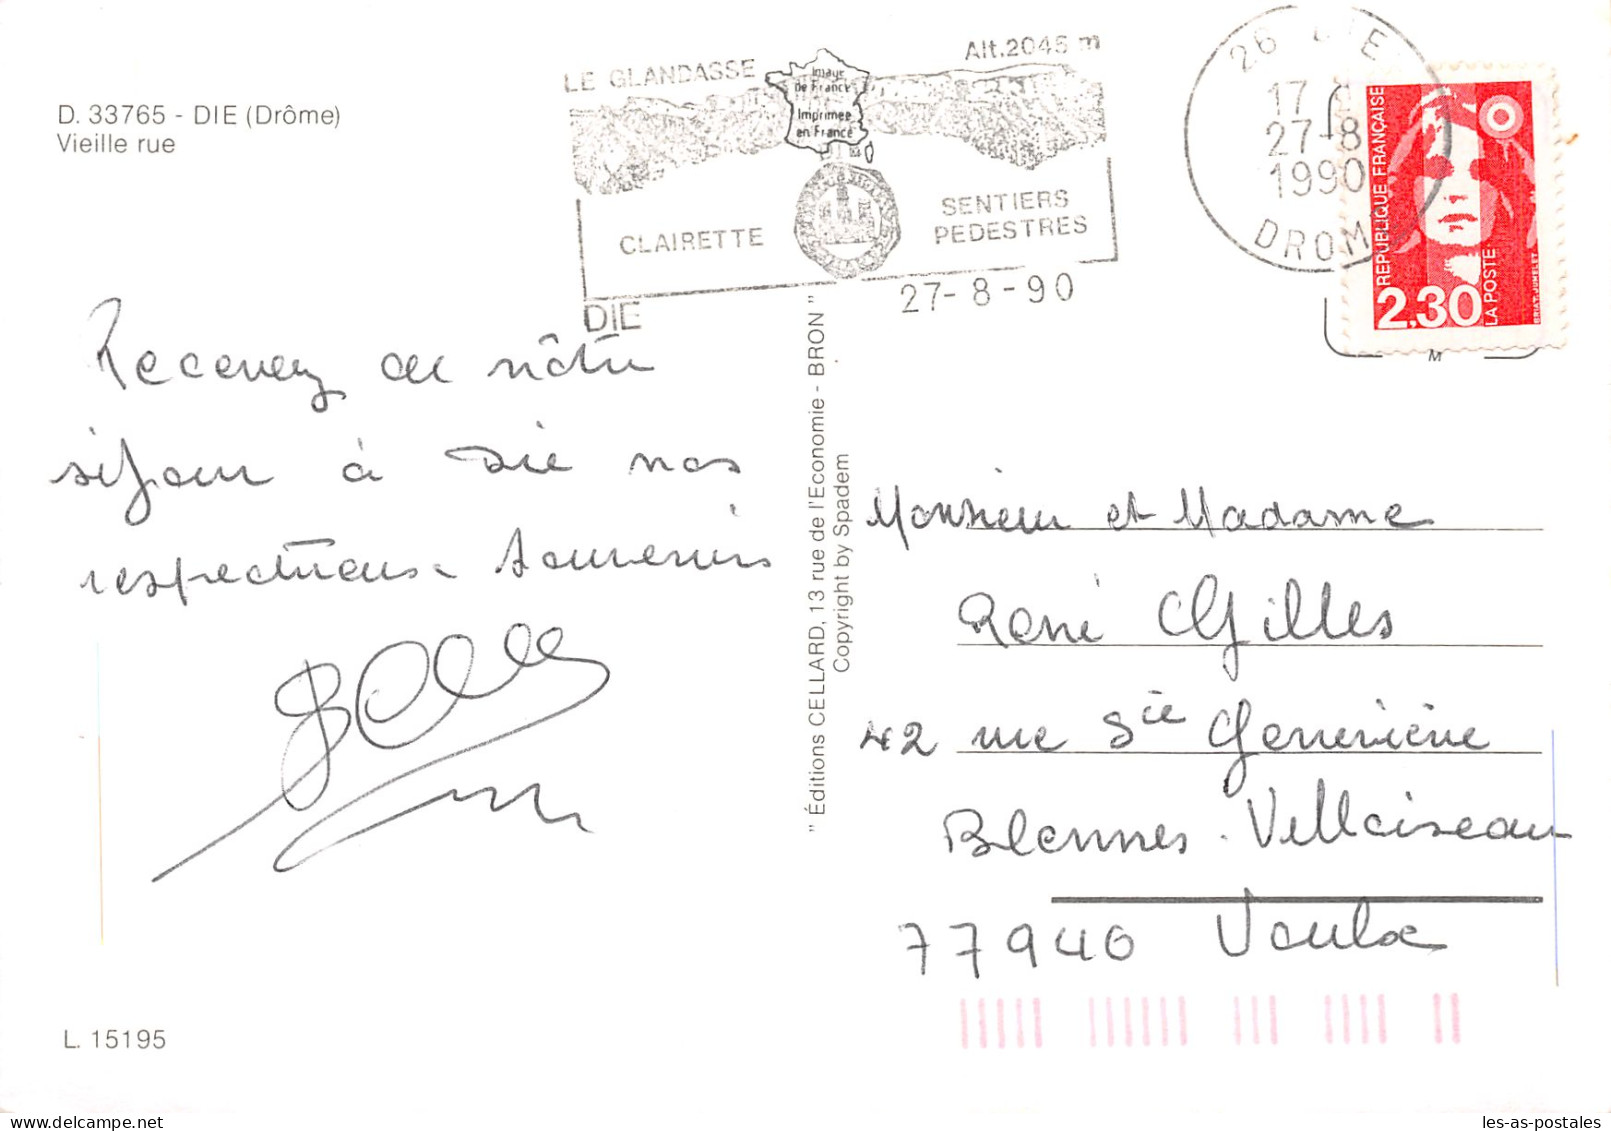 D. 33765 - DIE (Drôme)
Vieille rue
LE GLANDASSE
Alt.2045 m
Image
de France
Imprimée
en France
CLAIRETTE
SENTIERS
PEDESTRES
DIE
27-8-90
26 DIE
17
27-8
1990
DROME
REPUBLIQUE FRANÇAISE
2,30
LA POSTE
BRIAT. JUMELET
M
Recevez de nôtre
séjour à Die nos
respectueux souvenirs
" Éditions CELLARD, 13 rue de l'Economie - BRON "
Copyright by Spadem
Monsieur et Madame
René Gilles
42 rue Ste Geneviève
Blennes. Villoiseau
77940 Voulx
L. 15195
les-as-postales